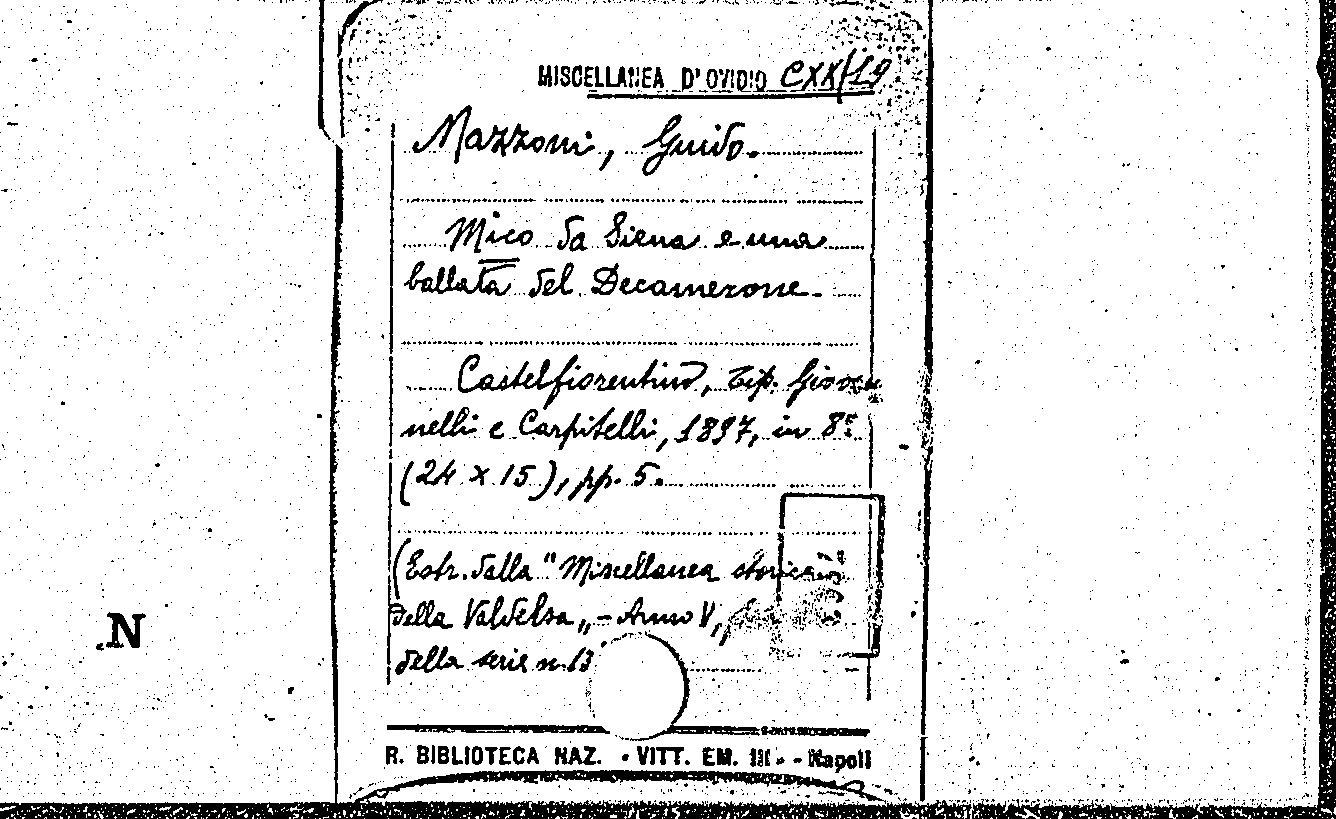 MISCELLANEA D'OVIDIO CXX/19
Mazzoni, Guido.
Mico da Siena e una
ballata del Decamerone.
Castelfiorentino, tip. Giovan
nelli e Carpitelli, 1897, in 8º
(24 x 15), pp. 5.
(Estr. dalla "Miscellanea storica
della Valdelsa„ - Anno V,
della serie n. 13
R. BIBLIOTECA NAZ. • VITT. EM. III - - Napoli
.N